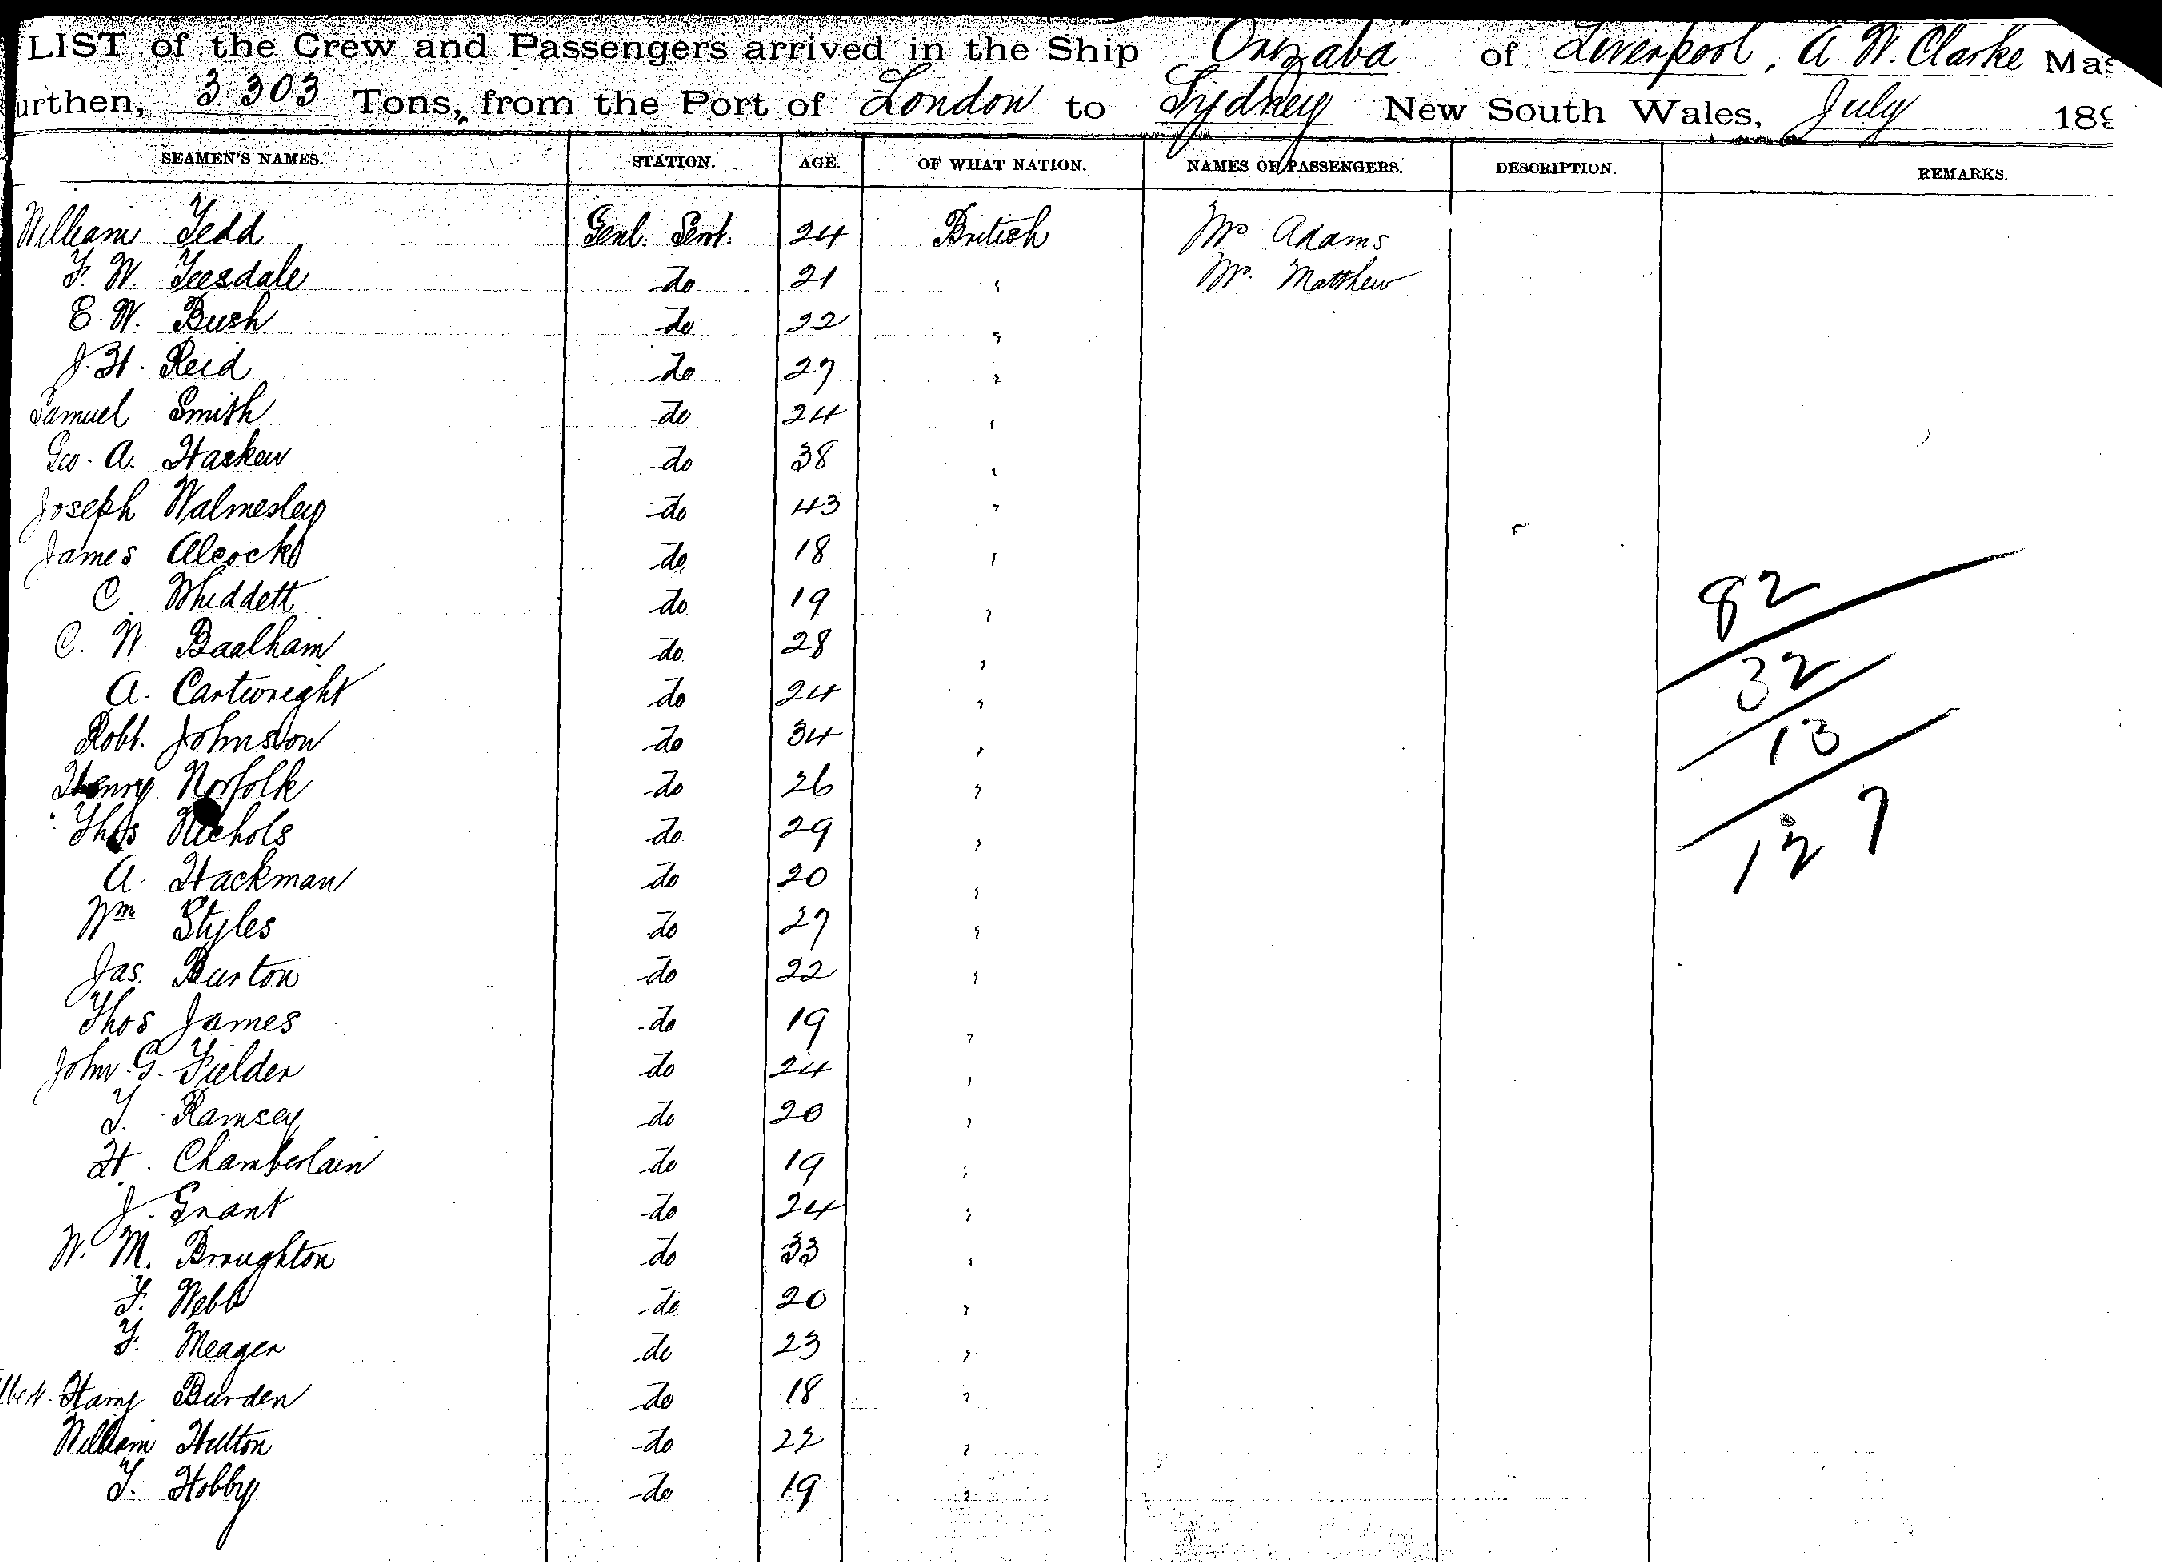 LIST of the Crew and Passengers arrived in the Ship Orizaba of Liverpool, A W. Clarke Mas
urthen, 3.303 Tons, from the Port of London to Sydney New South Wales, July 189
SEAMEN'S NAMES. STATION. AGE. OF WHAT NATION. NAMES OF PASSENGERS. DESCRIPTION. REMARKS.
William Tedd Genl. Servt. 24 British Mrs Adams
F. W. Teesdale do 21 " Mr. Matthew
E. W. Bush do 22 "
J. H. Reid do 27 "
Samuel Smith do 24 "
Geo. A. Haskew do 38 "
Joseph Walmesley do 43 "
James Alcock do 18 "
C. Whiddett do 19 "
C. W. Baalham do 28 "
A. Cartwright do 24 "
Robt. Johnston do 34 "
Henry Norfolk do 26 "
Thos Nichols do 29 "
A. Hackman do 20 "
Wm Styles do 27 "
Jas. Burton do 22 "
Thos James do 19 "
John. G. Fielder do 24 "
T. Ramsey do 20 "
H. Chamberlain do 19 "
J. Grant do 24 "
W. M. Broughton do 33 "
F. Webb do 20 "
F. Meager do 23 "
Harry Burden do 18 "
William Hutton do 22 "
T. Hobby do 19 "
82
32
13
127